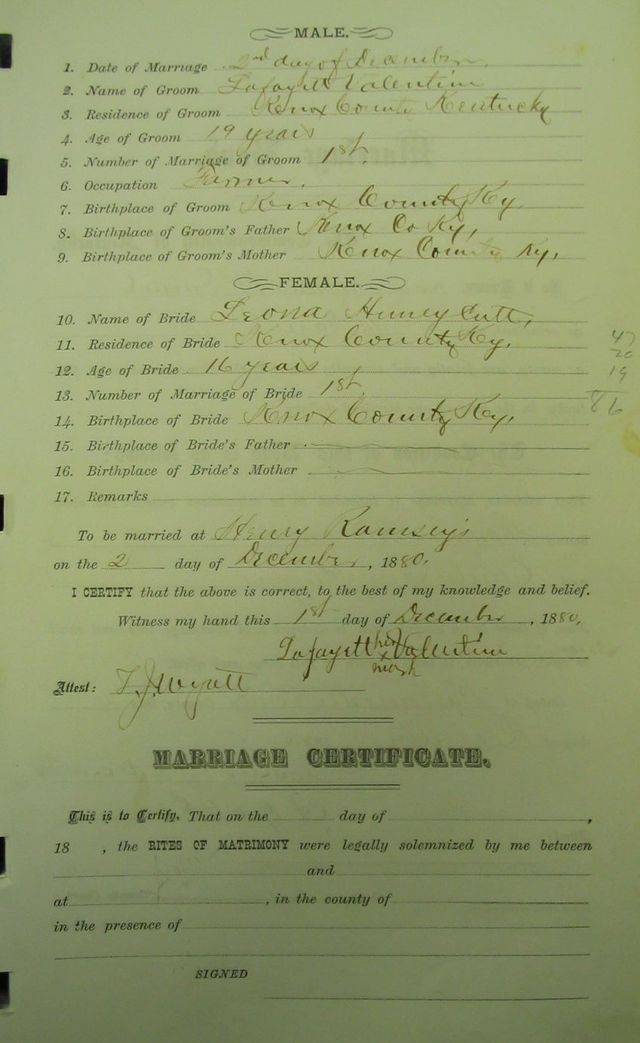 MALE.
1. Date of Marriage 2nd day of December.
2. Name of Groom Lafayett Valentine
3. Residence of Groom Knox County Kentucky
4. Age of Groom 19 years
5. Number of Marriage of Groom 1st.
6. Occupation Farmer.
7. Birthplace of Groom Knox County Ky
8. Birthplace of Groom's Father Knox Co Ky,
9. Birthplace of Groom's Mother Knox County Ky,
FEMALE.
10. Name of Bride Leona Huneycutt,
11. Residence of Bride Knox County Ky,
12. Age of Bride 16 years
13. Number of Marriage of Bride 1st
14. Birthplace of Bride Knox County Ky,
15. Birthplace of Bride's Father
16. Birthplace of Bride's Mother
17. Remarks
47
20
19
86
To be married at Henry Ramsey's
on the 2 day of December, 1880.
I CERTIFY that the above is correct, to the best of my knowledge and belief.
Witness my hand this 1st day of December, 1880,
Lafayett his x mark Valentine
Attest: Wyatt
MARRIAGE CERTIFICATE.
This is to Certify, That on the day of ,
18 , the RITES OF MATRIMONY were legally solemnized by me between
and
at , in the county of
in the presence of
SIGNED